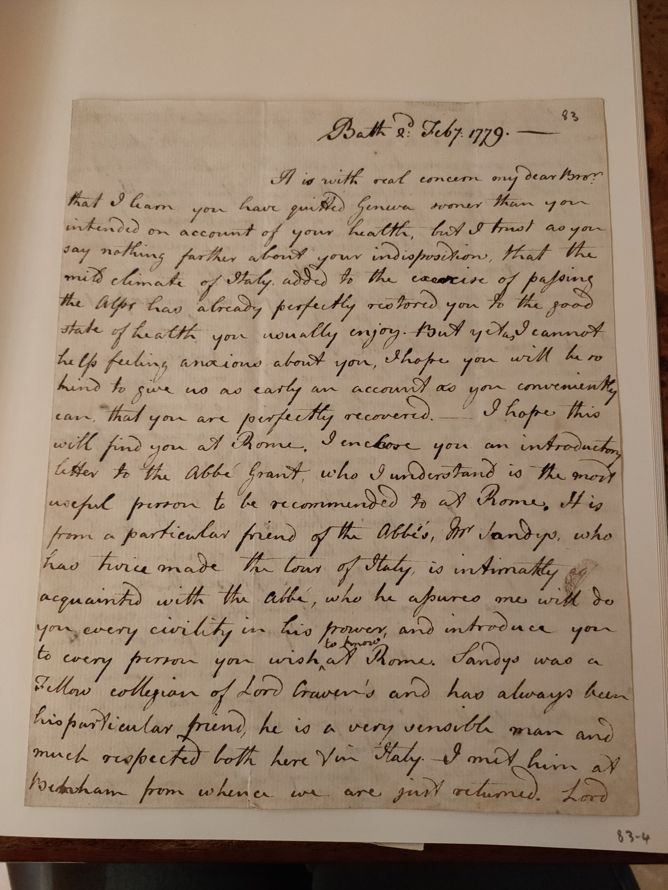 83
Bath 2d. Feby. 1779. —
It is with real concern my dear Bror.
that I learn you have quitted Geneva sooner than you
intended on account of your health, but I trust as you
say nothing farther about your indisposition, that the
mild climate of Italy, added to the exercise of passing
the Alps has already perfectly restored you to the good
state of health you usually enjoy. But yet as I cannot
help feeling anxious about you, I hope you will be so
kind to give us as early an account as you conveniently
can, that you are perfectly recovered. — I hope this
will find you at Rome. I enclose you an introductory
letter to the Abbé Grant, who I understand is the most
useful person to be recommended to at Rome. It is
from a particular friend of the Abbé's, Mr Sandys, who
has twice made the tour of Italy, is intimately
acquainted with the Abbé, who he assures me will do
you every civility in his power, and introduce you
to know
to every person you wish ^ at Rome. Sandys was a
Fellow collegian of Lord Craven's and has always been
his particular friend, he is a very sensible man and
much respected both here & in Italy – I met him at
Benham from whence we are just returned. Lord
83-4